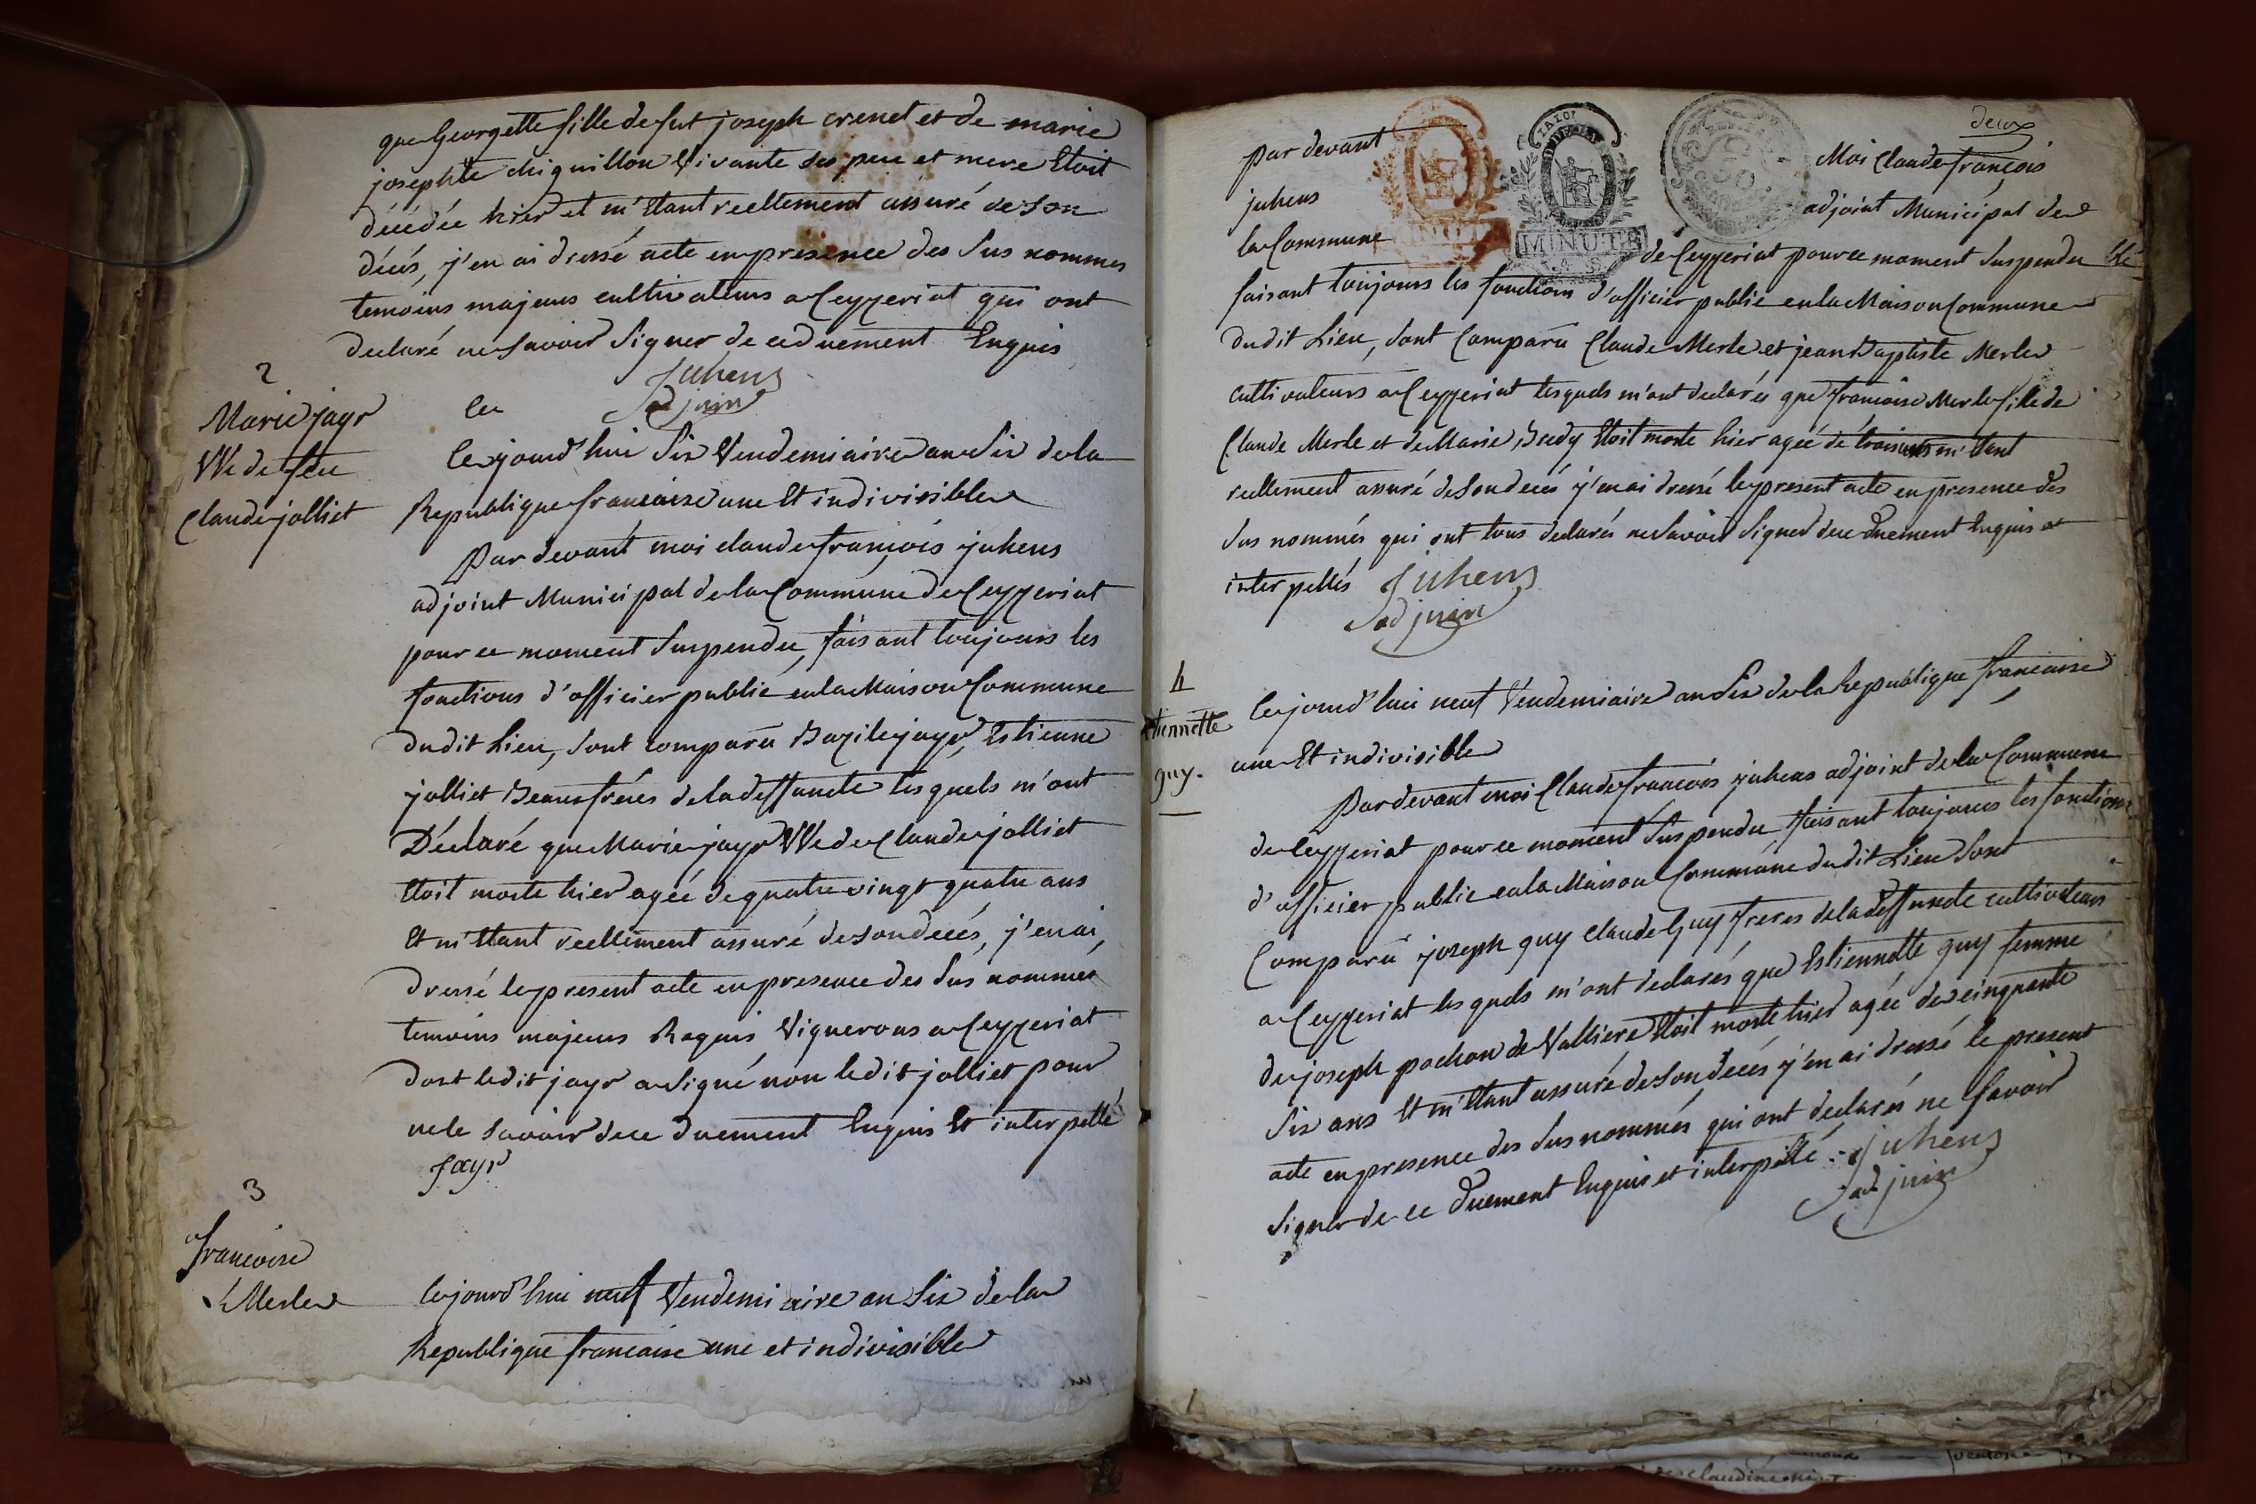 que Georgette fille de fut joseph crenet et de marie
josephte chiquillon Vivante ses pere et mere Etoit
décédée hier et m'Etant reellement assuré de son
décés, j'en ai dressé acte en presence des sus nommes
temoins majeurs cultivateurs a Ceyzeriat qui ont
declaré ne savoir signer de ce duement Enquis
Juhens
adjuin
2
Marie jayr
Ve de feu
Claude jolliet
Ce
Ce jourd'hui Six Vendemiaire an Six de la
Republique francaise une Et indivisible
Par devant moi claude françois juhens
adjoint Municipal de la Commune de Ceyzeriat
pour ce moment suspendu, faisant toujours les
fonctions d'officier public en la Maison Commune
du dit Lieu, sont comparu Bazile jayr, Estienne
jolliet Beaux freres de la deffuncte les quels m'ont
Déclaré que Marie jayr Ve de Claude jolliet
Etoit morte hier agée de quatre vingt quatre ans
Et m'Etant reellement assuré de son decés, j'en ai
dressé le present acte en presence des sus nommés
temoins majeurs Requis Vignerons a Ceyzeriat
dont le dit jayr a signé non le dit jolliet pour
ne le savoir de ce duement Enquis Et interpellé
Jayr
3
francoise
Merle
Ce jourd'hui neuf Vendemiaire an Six de la
Republique francaise une et indivisible
deux
par devant Moi Claude françois
juhens adjoint Municipal de
la Commune de Ceyzeriat pour ce moment suspendu
faisant toujours les fonctions d'officier public en la Maison Commune
du dit Lieu, sont Comparu Claude Merle et jean Baptiste Merle
cultivateurs a Ceyzeriat les quels m'ont declarés que francoise Merle fille de
Claude Merle et de Marie Bredy Etoit morte hier ageé de trois ans m'Etant
reellement assuré de son decés j'en ai dressé le present acte en presence des
sus nommés qui ont tous declarés ne savoir signer de ce duement Enquis et
interpellés Juhens
adjuin
MINUTE
4
Etiennette
guy.
Ce jourd'hui neuf Vendemiaire an Six de la Republique francaise
une Et indivisible
Par devant moi Claude francois juhens adjoint de la Commune
de Ceyzeriat pour ce moment suspendu faisant toujours les fonctions
d'officier public en la Maison Commune du dit Lieu sont
Comparu joseph guy claude Guy freres de la deffuncte cultivateurs
a Ceyzeriat les quels m'ont declarés que Estiennette guy femme
de joseph pochon de Valliere Etoit morte hier agée de cinquante
Six ans Et m'Etant assuré de son decés j'en ai dressé le present
acte en presence des sus nommés qui ont declarés ne savoir
signer de ce duement Enquis et interpellé. Juhens
adjuin